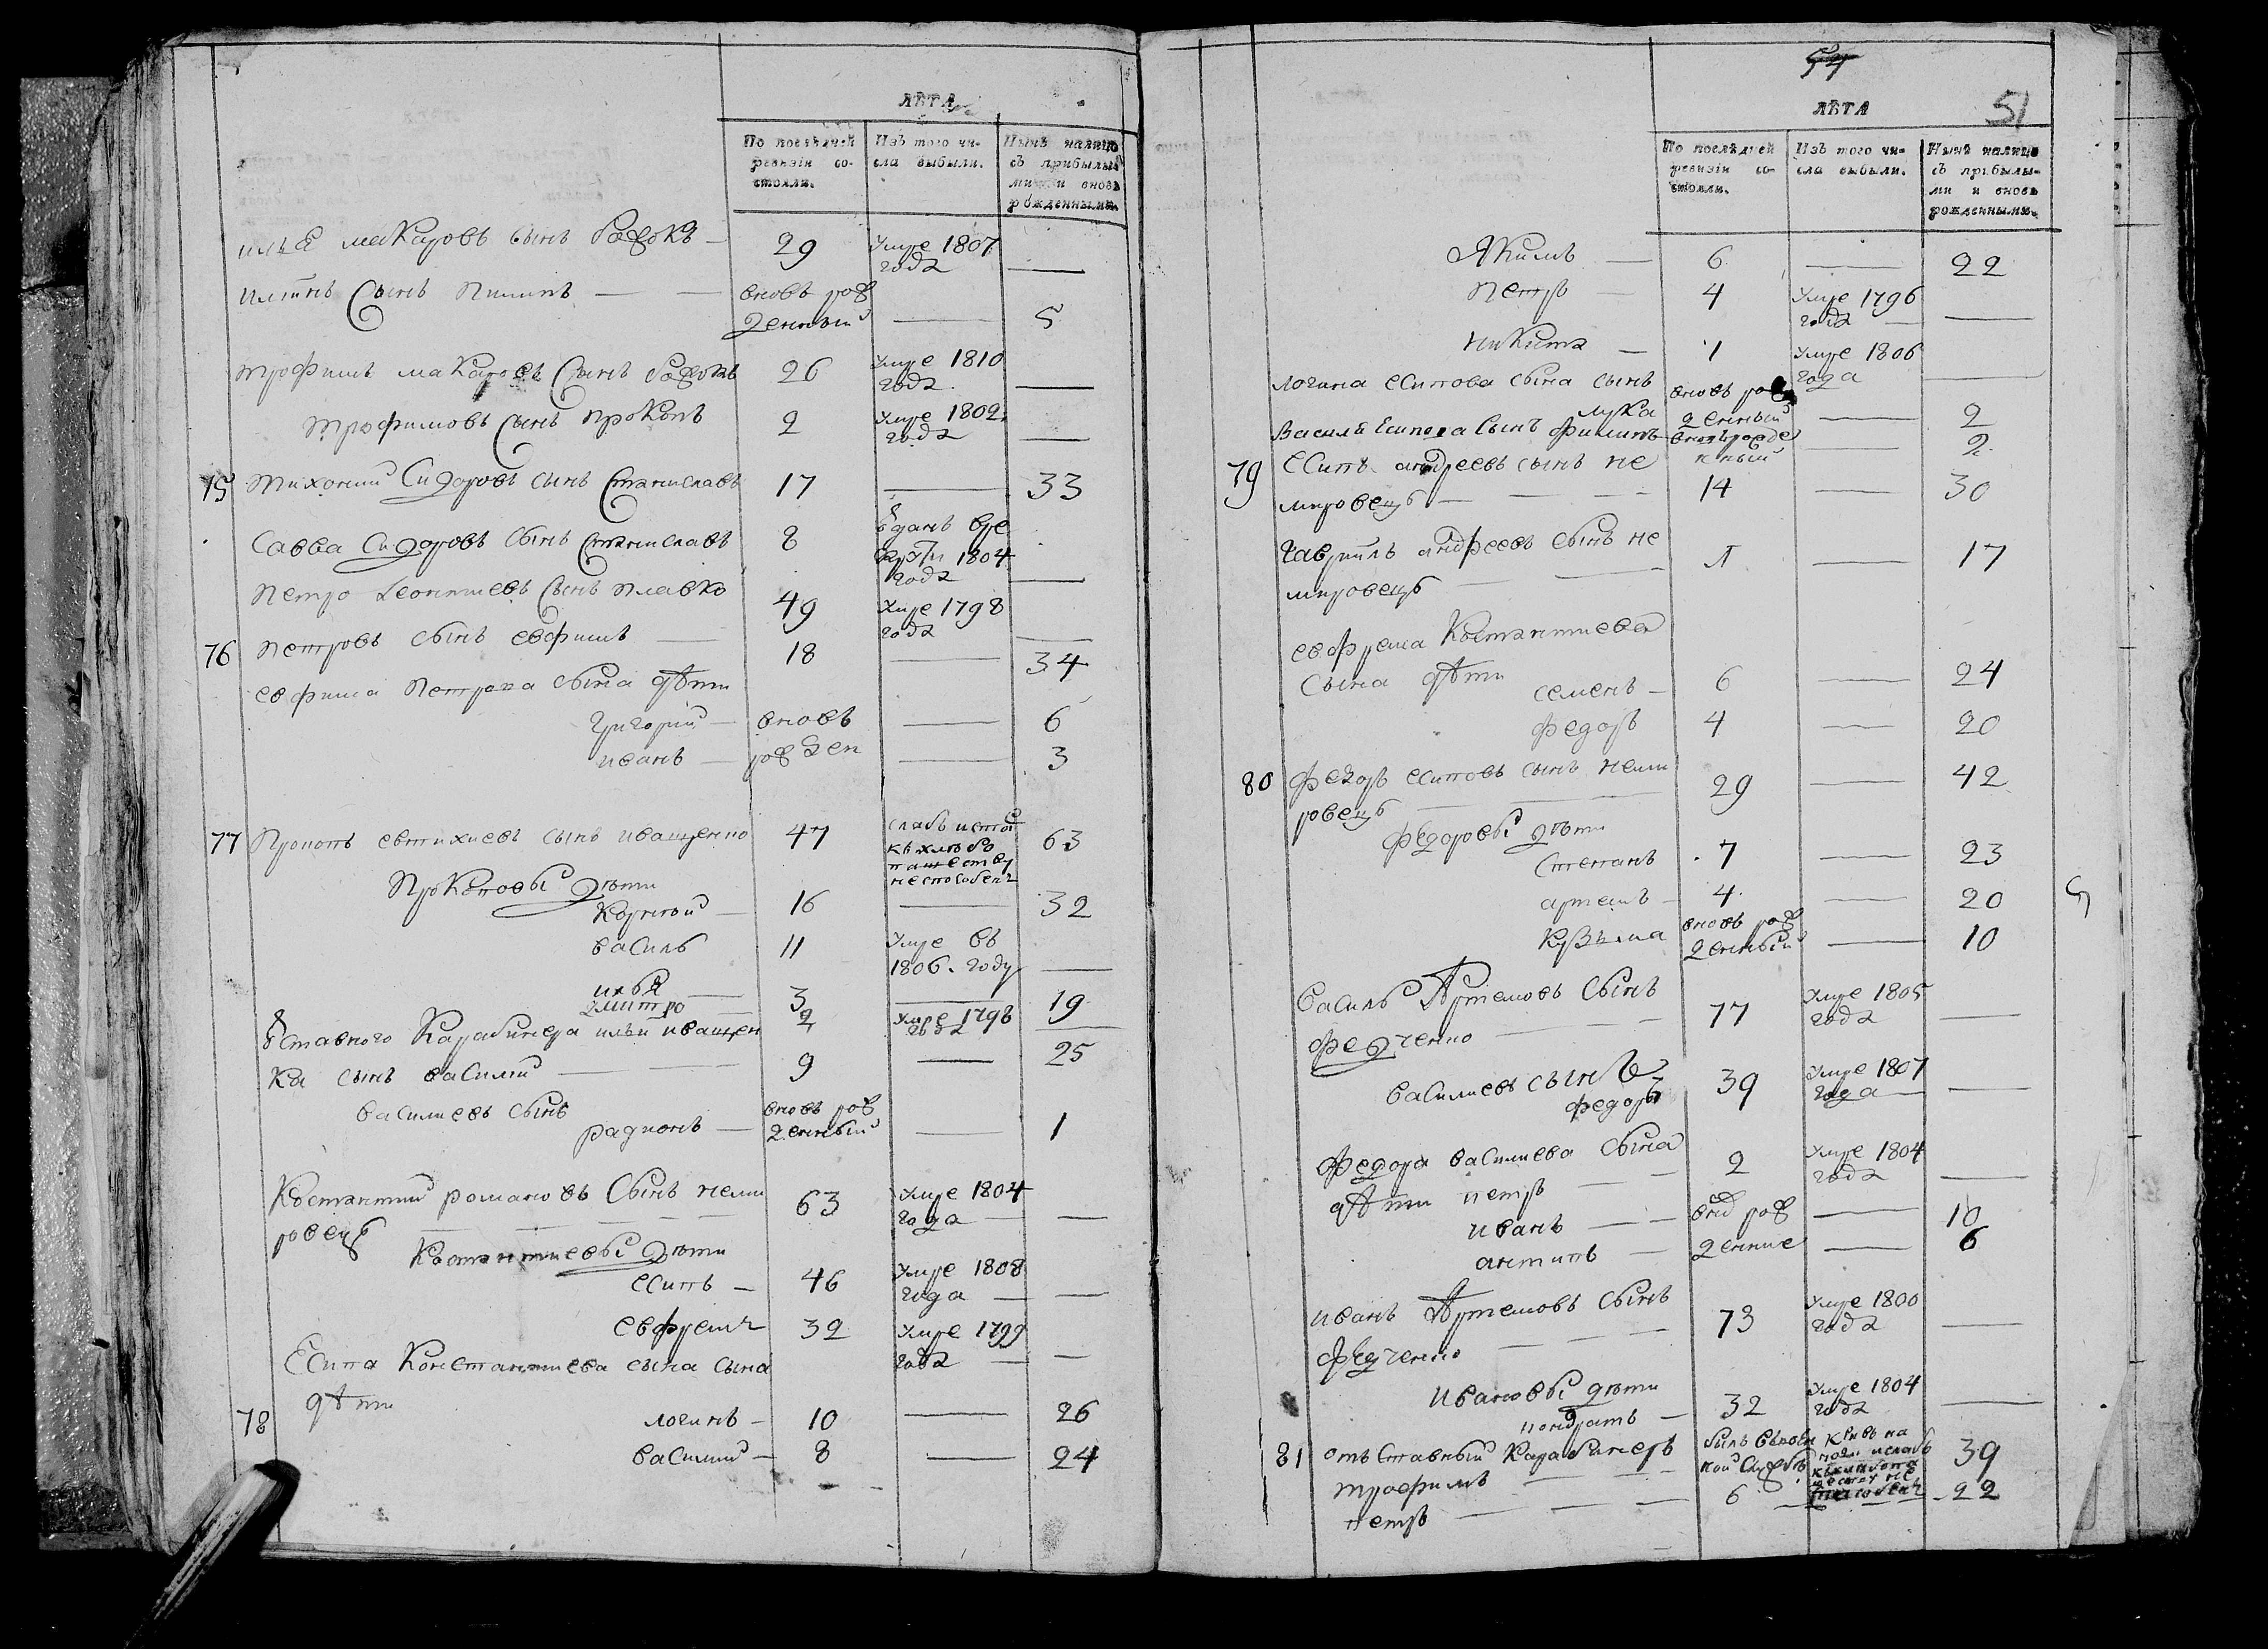 ЛѢТА
По послѣдней ревизіи со-стояли.
Изъ того чи-сла выбыли.
Нынѣ налицо съ прибылы-ми и вновь рожденными.
Илья Макаровъ сынъ — 29 Умре 1807 года —
Илiинъ сынъ Пилипъ — вновь рож денный — 5
Трофимъ Макаровъ сынъ 26 Умре 1810 года —
Трофимовъ сынъ Прокопъ 2 Умре 1802 года —
75 Тихоний Сидоровъ сынъ Станиславъ 17 — 33
Савва Сидоровъ сынъ Станиславъ 8 въ данъ вре 1804 года —
Петро Леонтиевъ сынъ Плавко 49 Умре 1798 года —
76 Петровъ сынъ Евфимъ — 18 — 34
Евфима Петрова сына дѣти
Григорий — вновь — 6
Иванъ — рожден — 3
77 Прокопъ Евтихиевъ сынъ Иващенко 47 слабъ къ хлѣбо пашеству неспособенъ 63
Прокоповы дѣти
Корний — 16 — 32
Василь 11 Умре въ 1806 году —
Илья — 3 — 19
Дмитро 2 Умре 1798 года —
Карабинера Ильи Иващен
ка сынъ Василий — 9 — 25
Василиевъ сынъ
Радионъ — вновь рож денный — 1
Костантий Романовъ сынъ Неми
ровецъ — 63 Умре 1804 года —
Костантиевы дѣти
Есипъ — 46 Умре 1808 года —
Евфремъ 32 Умре 1799 года —
Есипа Константиева сына сына
дѣти
78 Логинъ — 10 — 26
Василий — 8 — 24
54
51
ЛѢТА
По послѣдней ревизіи со-стояли.
Изъ того чи-сла выбыли.
Нынѣ налицо съ прибылы-ми и вновь рожденными.
Якимъ — 6 — 22
Петръ — 4 Умре 1796 года —
Никита — 1 Умре 1806 года —
Логина Есипова сына сынъ
Лука вновь рож денный — 2
Василя Есипова сынъ Филипъ вновь рожде нный — 2
79 Есипъ Андреевъ сынъ Не
мировецъ — 14 — 30
Гаврiилъ Андреевъ сынъ Не
мировецъ — — 17
Евфрема Костантиева
сына дѣти
Семенъ — 6 — 24
Федоръ 4 — 20
80 Федоръ Есиповъ сынъ Неми
ровецъ — 29 — 42
Федоровы дѣти
Степанъ 7 — 23
Артемъ — 4 — 20
Кузьма вновь рож денный — 10
Василь Артемовъ сынъ
Федченко — 77 Умре 1805 года —
Василиевъ сынъ
Федоръ 39 Умре 1807 года —
Федора Василиева сына
дѣти Петръ — 2 Умре 1804 года —
Иванъ — внов рож — 10
Антипъ — денние — 6
Иванъ Артемовъ сынъ
Федченко — 73 Умре 1800 года —
Ивановы дѣти
Кондратъ — 32 Умре 1804 года —
81 Отъставный Карабинеръ
Трофимъ — былъ въ воен ной службѣ 39
Петръ — 6 — 22